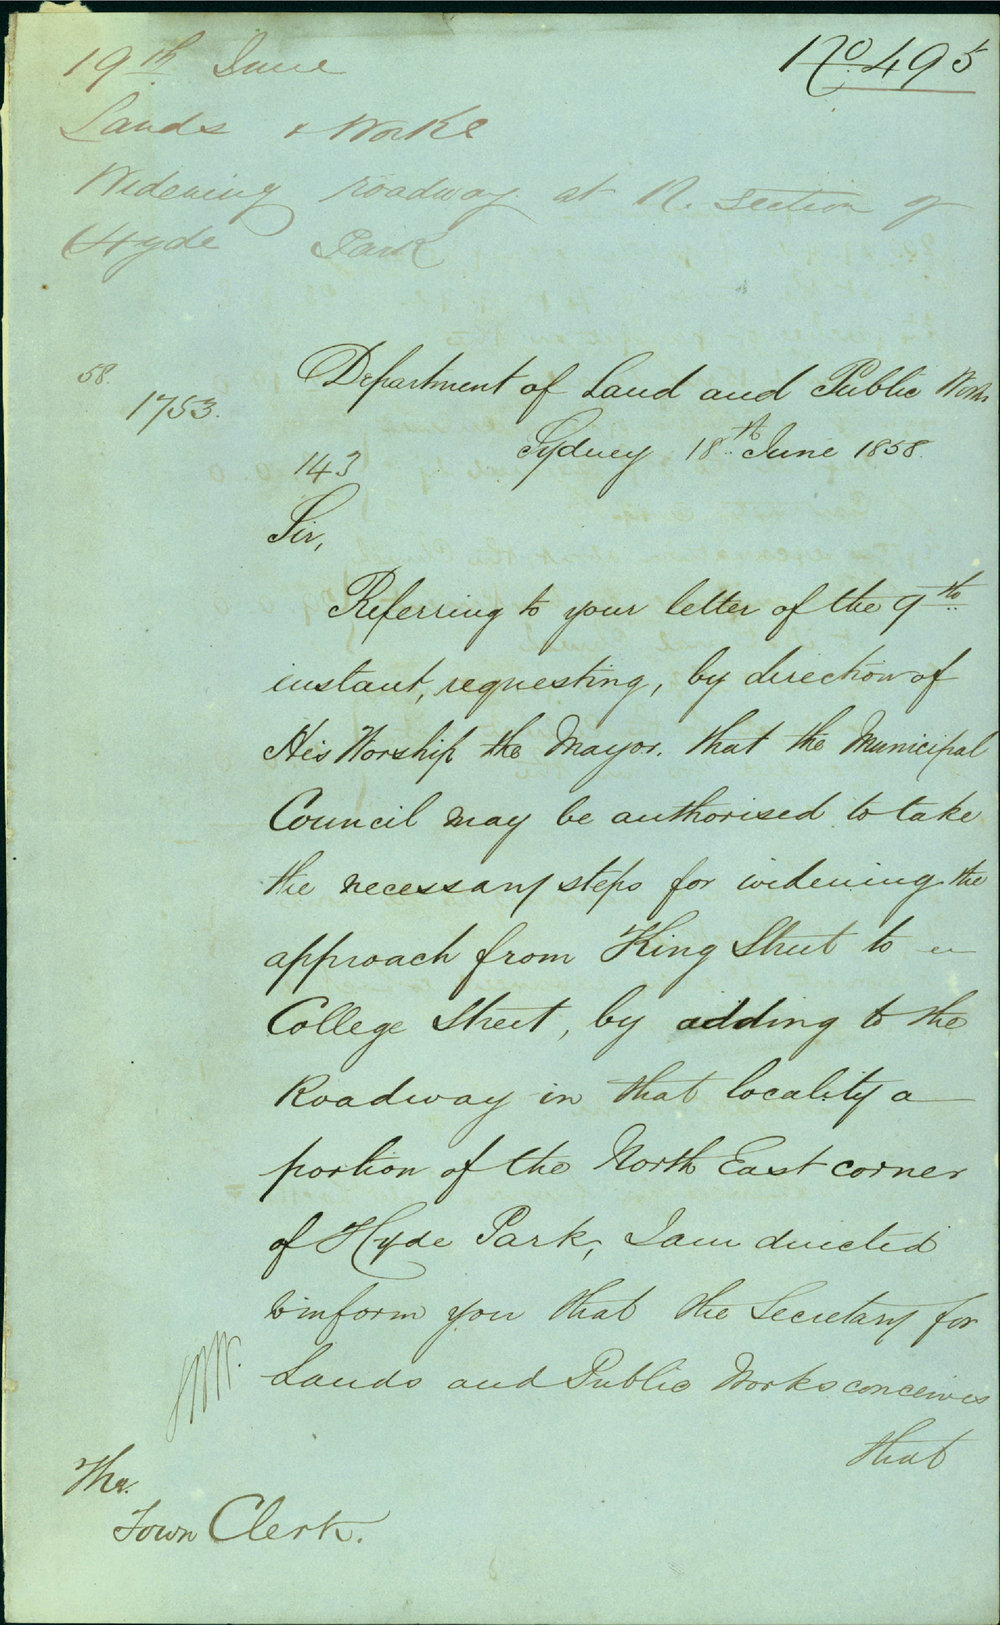 No. 495
19th June
Lands & Works
Widening roadway at N. section of
Hyde Park
58.
1753.
143
Department of Land and Public Works
Sydney 18th June 1858.
Sir,
Referring to your letter of the 9th
instant, requesting, by direction of
His Worship the Mayor. that the Municipal
Council may be authorised to take
the necessary steps for widening the
approach from King Street to
College Street, by adding to the
Roadway in that locality a
portion of the North East corner
of Hyde Park, I am directed
to inform you that the Secretary for
Lands and Public Works conceives
that
The.
Town Clerk.